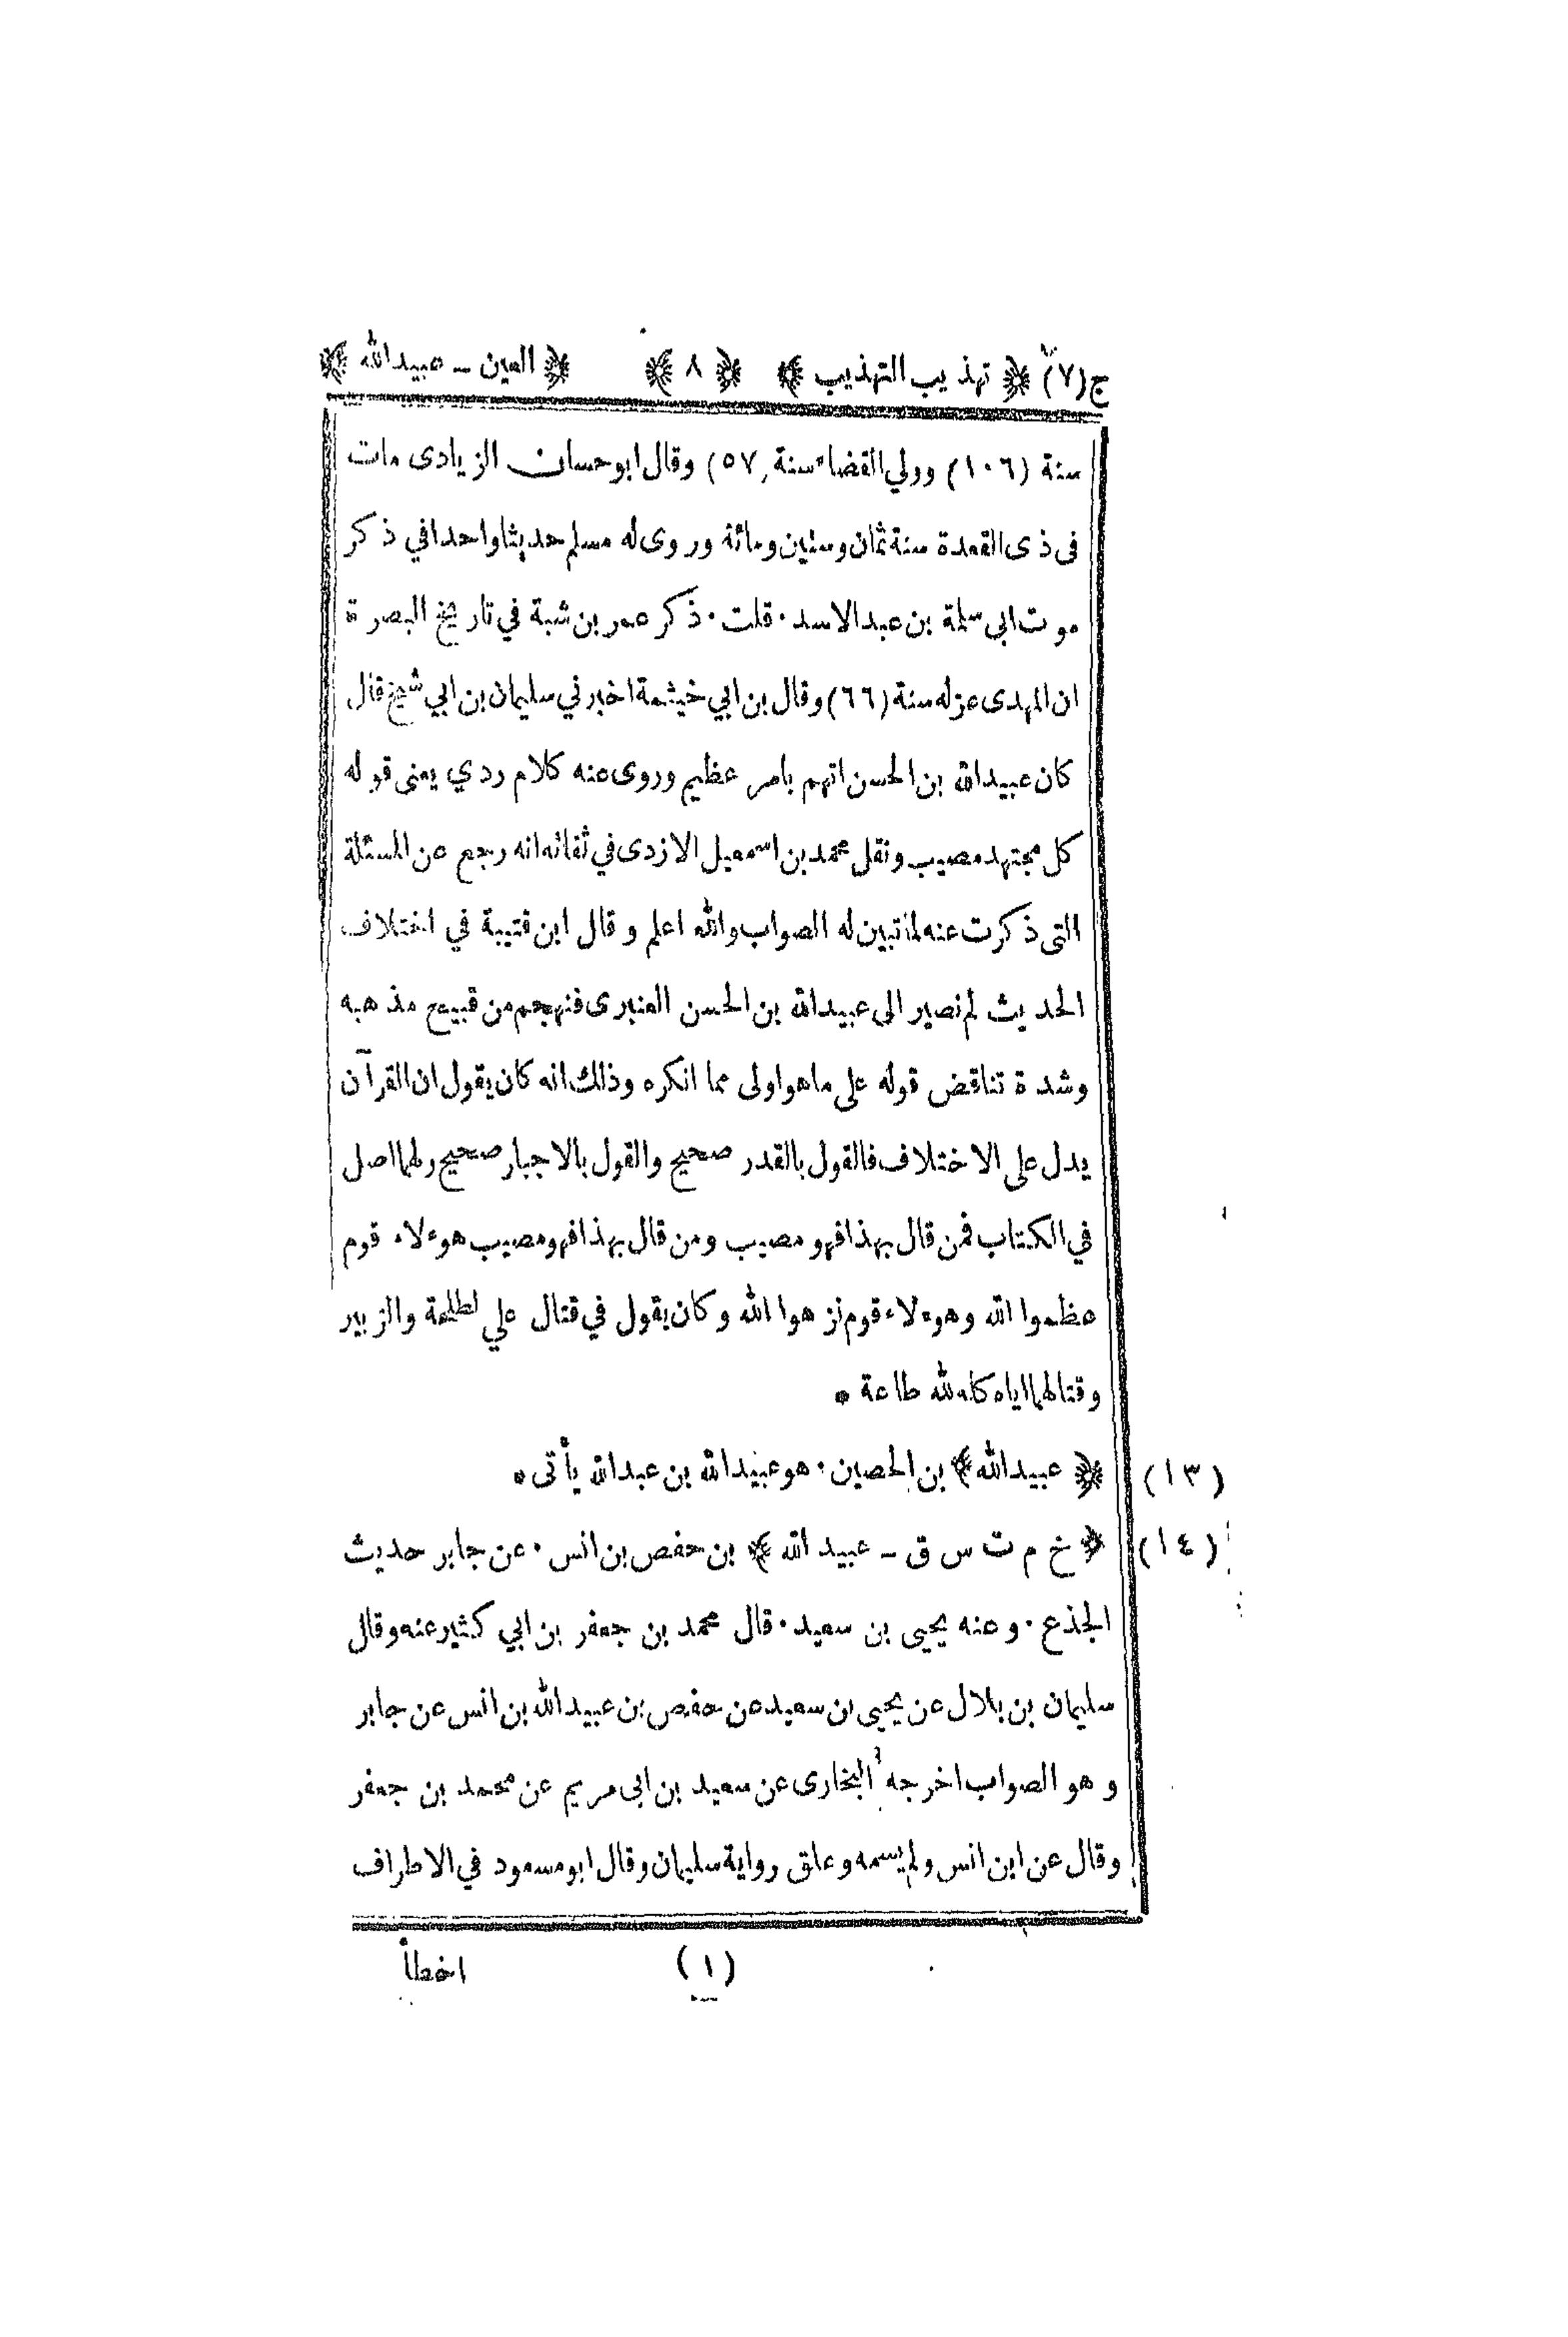 ج(٧) ﴿ تهذيب التهذيب ﴾ ﴿ ٨ ﴾ ﴿ العين ـ عبيدالله ﴾
سنة (١٠٦) وولي القضاء سنة (٥٧) وقال ابوحسان الزيادى مات
فى ذى القعدة سنة ثمان وستين ومائة وروى له مسلم حديثا واحدا في ذكر
موت ابى سلمة بن عبدالاسد ٠ قلت ٠ ذكر عمر بن شبة في تاريخ البصرة
ان المهدى عزله سنة (٦٦) وقال بن ابي خيثمة اخبرني سليمان بن ابي شيخ قال
كان عبيدالله بن الحسن اتهم بامر عظيم وروى عنه كلام ردي يعنى قوله
كل مجتهد مصيب ونقل محمد بن اسمعيل الازدى في ثقاته انه رجع عن المسئلة
التى ذكرت عنه لما تبين له الصواب والله اعلم وقال ابن قتيبة في اختلاف
الحديث ثم نصير الى عبيدالله بن الحسن العنبرى فنهجم من قبيح مذهبه
وشدة تناقض قوله على ماهو اولى مما انكره وذلك انه كان يقول ان القرآن
يدل على الاختلاف فالقول بالقدر صحيح والقول بالاجبار صحيح ولهما اصل
في الكتاب فمن قال بهذا فهو مصيب ومن قال بهذا فهو مصيب هوءلاء قوم
عظموا الله وهوءلاء قوم نزهوا الله وكان يقول في قتال علي لطلحة والزبير
وقتالهما اياه كله لله طاعة *
(١٣) ﴿ عبيدالله ﴾ بن الحصين ٠ هو عبيدالله بن عبدالله يأتى *
(١٤) ﴿ خ م ت س ق ـ عبيد الله ﴾ بن حفص بن انس ٠ عن جابر حديث
الجذع ٠ وعنه يحيى بن سعيد ٠ قال محمد بن جعفر بن ابي كثير عنه وقال
سليمان بن بلال عن يحيى بن سعيد عن حفص بن عبيدالله بن انس عن جابر
وهو الصواب اخرجه البخارى عن سعيد بن ابى مريم عن محمد بن جعفر
وقال عن ابن انس ولم يسمه وعلق رواية سليمان وقال ابومسعود في الاطراف
(١) اخطأ